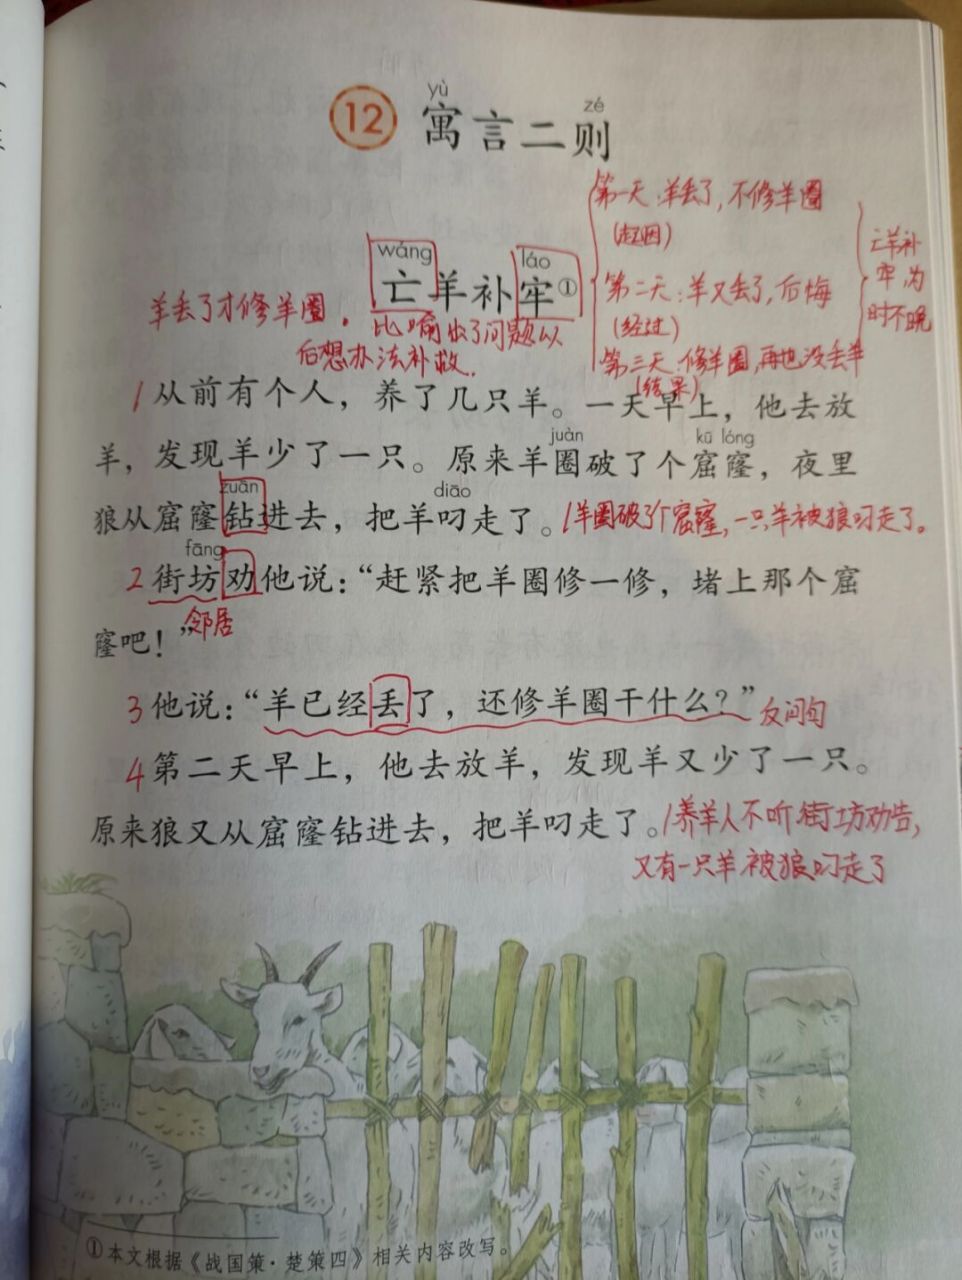 yù zé
12 寓言二则
第一天：羊丢了，不修羊圈
(起因)
wáng láo
亡羊补牢①
亡羊补
牢，为
时不晚
第二天：羊又丢了，后悔
(经过)
羊丢了才修羊圈．
比喻出了问题以
后想办法补救．
第三天：修羊圈，再也没丢羊
(结果)
1 从前有个人，养了几只羊。一天早上，他去放
juàn kū lóng
羊，发现羊少了一只。原来羊圈破了个窟窿，夜里
zuān diāo
狼从窟窿钻进去，把羊叼走了。/羊圈破了个窟窿，一只羊被狼叼走了。
fāng
2 街坊劝他说：“赶紧把羊圈修一修，堵上那个窟
邻居
窿吧！”
3 他说：“羊已经丢了，还修羊圈干什么？” 反问句
4 第二天早上，他去放羊，发现羊又少了一只。
原来狼又从窟窿钻进去，把羊叼走了。/养羊人不听街坊劝告，
又有一只羊被狼叼走了
①本文根据《战国策·楚策四》相关内容改写。